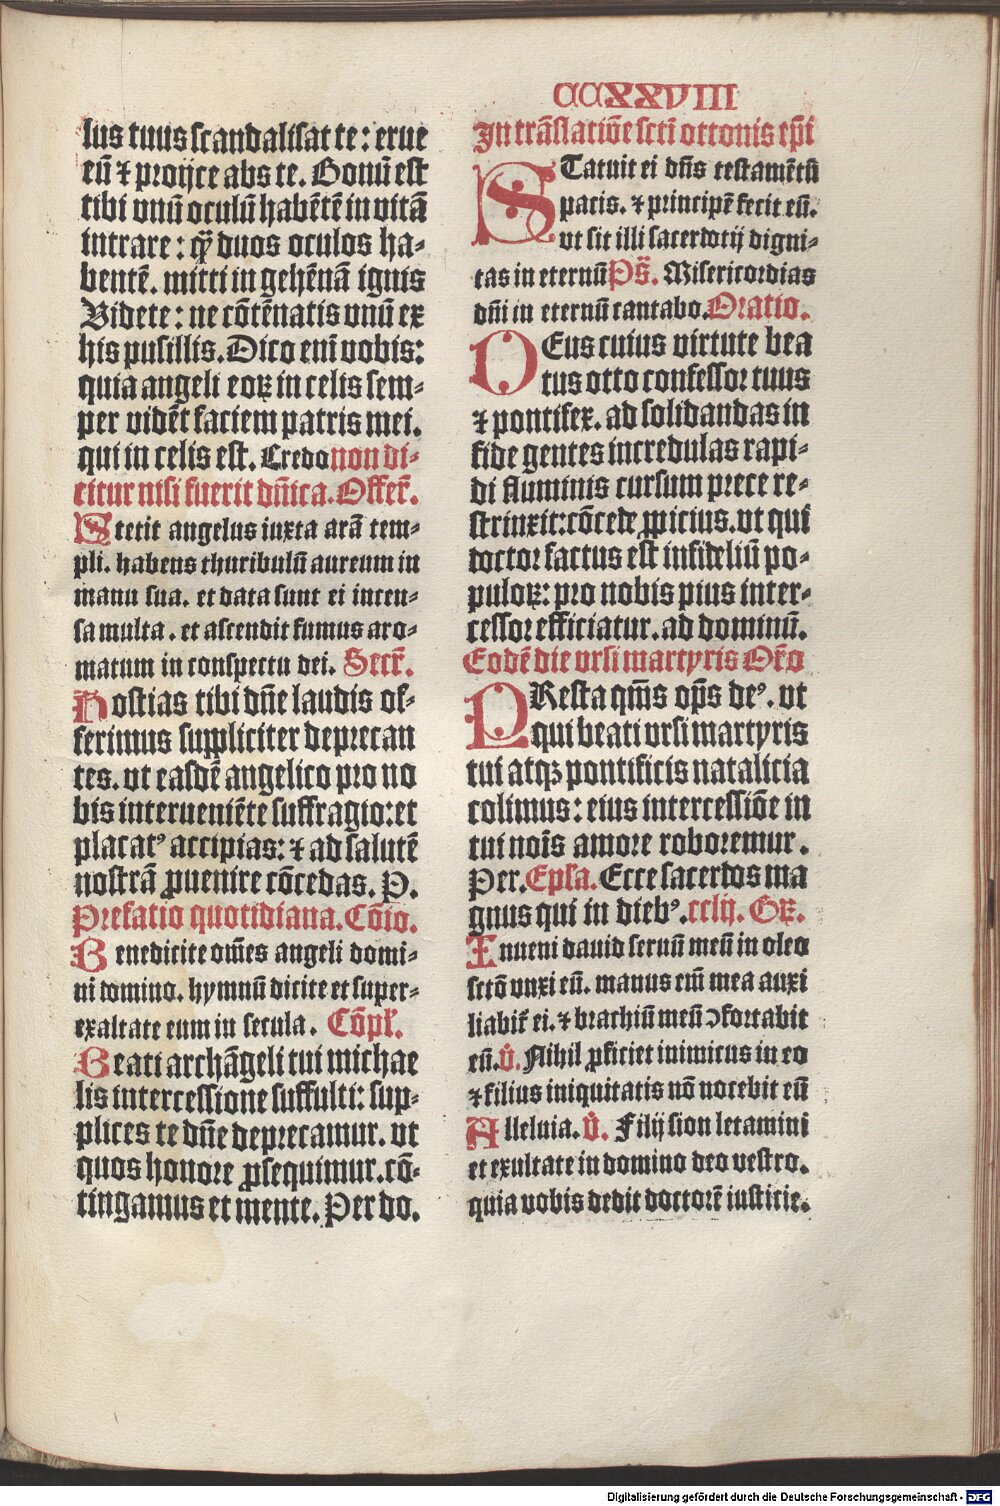 CCXXVIII
lus tuus scandalisat te: erue
eū ⁊ proijce abs te. Bonū est
tibi vnū oculū habētē in vitā
intrare: q̄ duos oculos ha-
bentē. mitti in gehēnā ignis
Videte: ne cōtēnatis vnū ex
his pusillis. Dico enī vobis:
quia angeli eoꝝ in celis sem-
per vidēt faciem patris mei.
qui in celis est. Credo non di-
citur nisi fuerit dn̄ica. Offer̄.
Stetit angelus iuxta arā tem-
pli. habens thuribulū aureum in
manu sua. et data sunt ei incen-
sa multa. et ascendit fumus aro-
matum in conspectu dei. Secr̄.
Hostias tibi dn̄e laudis of-
ferimus suppliciter deprecan
tes. vt easdē angelico pro no
bis interueniēte suffragio: et
placatꝰ accipias: ⁊ ad salutē
nostrā ꝓuenire cōcedas. P.
Prefatio quotidiana. Cōio.
Benedicite om̄es angeli domi-
ni domino. hymnū dicite et super-
exaltate eum in secula. Cōpl̄.
Beati archāgeli tui michae
lis intercessione suffulti: sup-
plices te dn̄e deprecamur. vt
quos honore ꝓsequimur. cō-
tingamus et mente. Per do.
In trāslatiōe scti ottonis ep̄i
STatuit ei dn̄s testamētū
pacis. ⁊ principē fecit eū.
vt sit illi sacerdotij digni-
tas in eternū Ps̄. Misericordias
dn̄i in eternū cantabo. Oratio.
DEus cuius virtute bea
tus otto confessor tuus
⁊ pontifex. ad solidandas in
fide gentes incredulas rapi-
di fluminis cursum prece re-
strinxit: cōcede ꝓpicius. vt qui
doctor factus est infideliū po-
puloꝝ: pro nobis pius inter-
cessor efficiatur. ad dominū.
Eodē die vrsi martyris Oro̅
PResta qm̄s op̄s deꝰ. vt
qui beati vrsi martyris
tui atqꝫ pontificis natalicia
colimus: eius intercessiōe in
tui nois̄ amore roboremur.
Per. Epl̄a. Ecce sacerdos ma
gnus qui in diebꝰ. cclij. Gꝝ.
Inueni dauid seruū meū in oleo
sctō vnxi eū. manus em̄ mea auxi
liabit̄ ei. ⁊ brachiū meū ↄfortabit
eū. v̄. Nihil ꝓficiet inimicus in eo
⁊ filius iniquitatis nō nocebit eū
Alleluia. v̄. Filij sion letamini
et exultate in domino deo vestro.
quia vobis dedit doctorē iusticie.
Digitalisierung gefördert durch die Deutsche Forschungsgemeinschaft - DFG